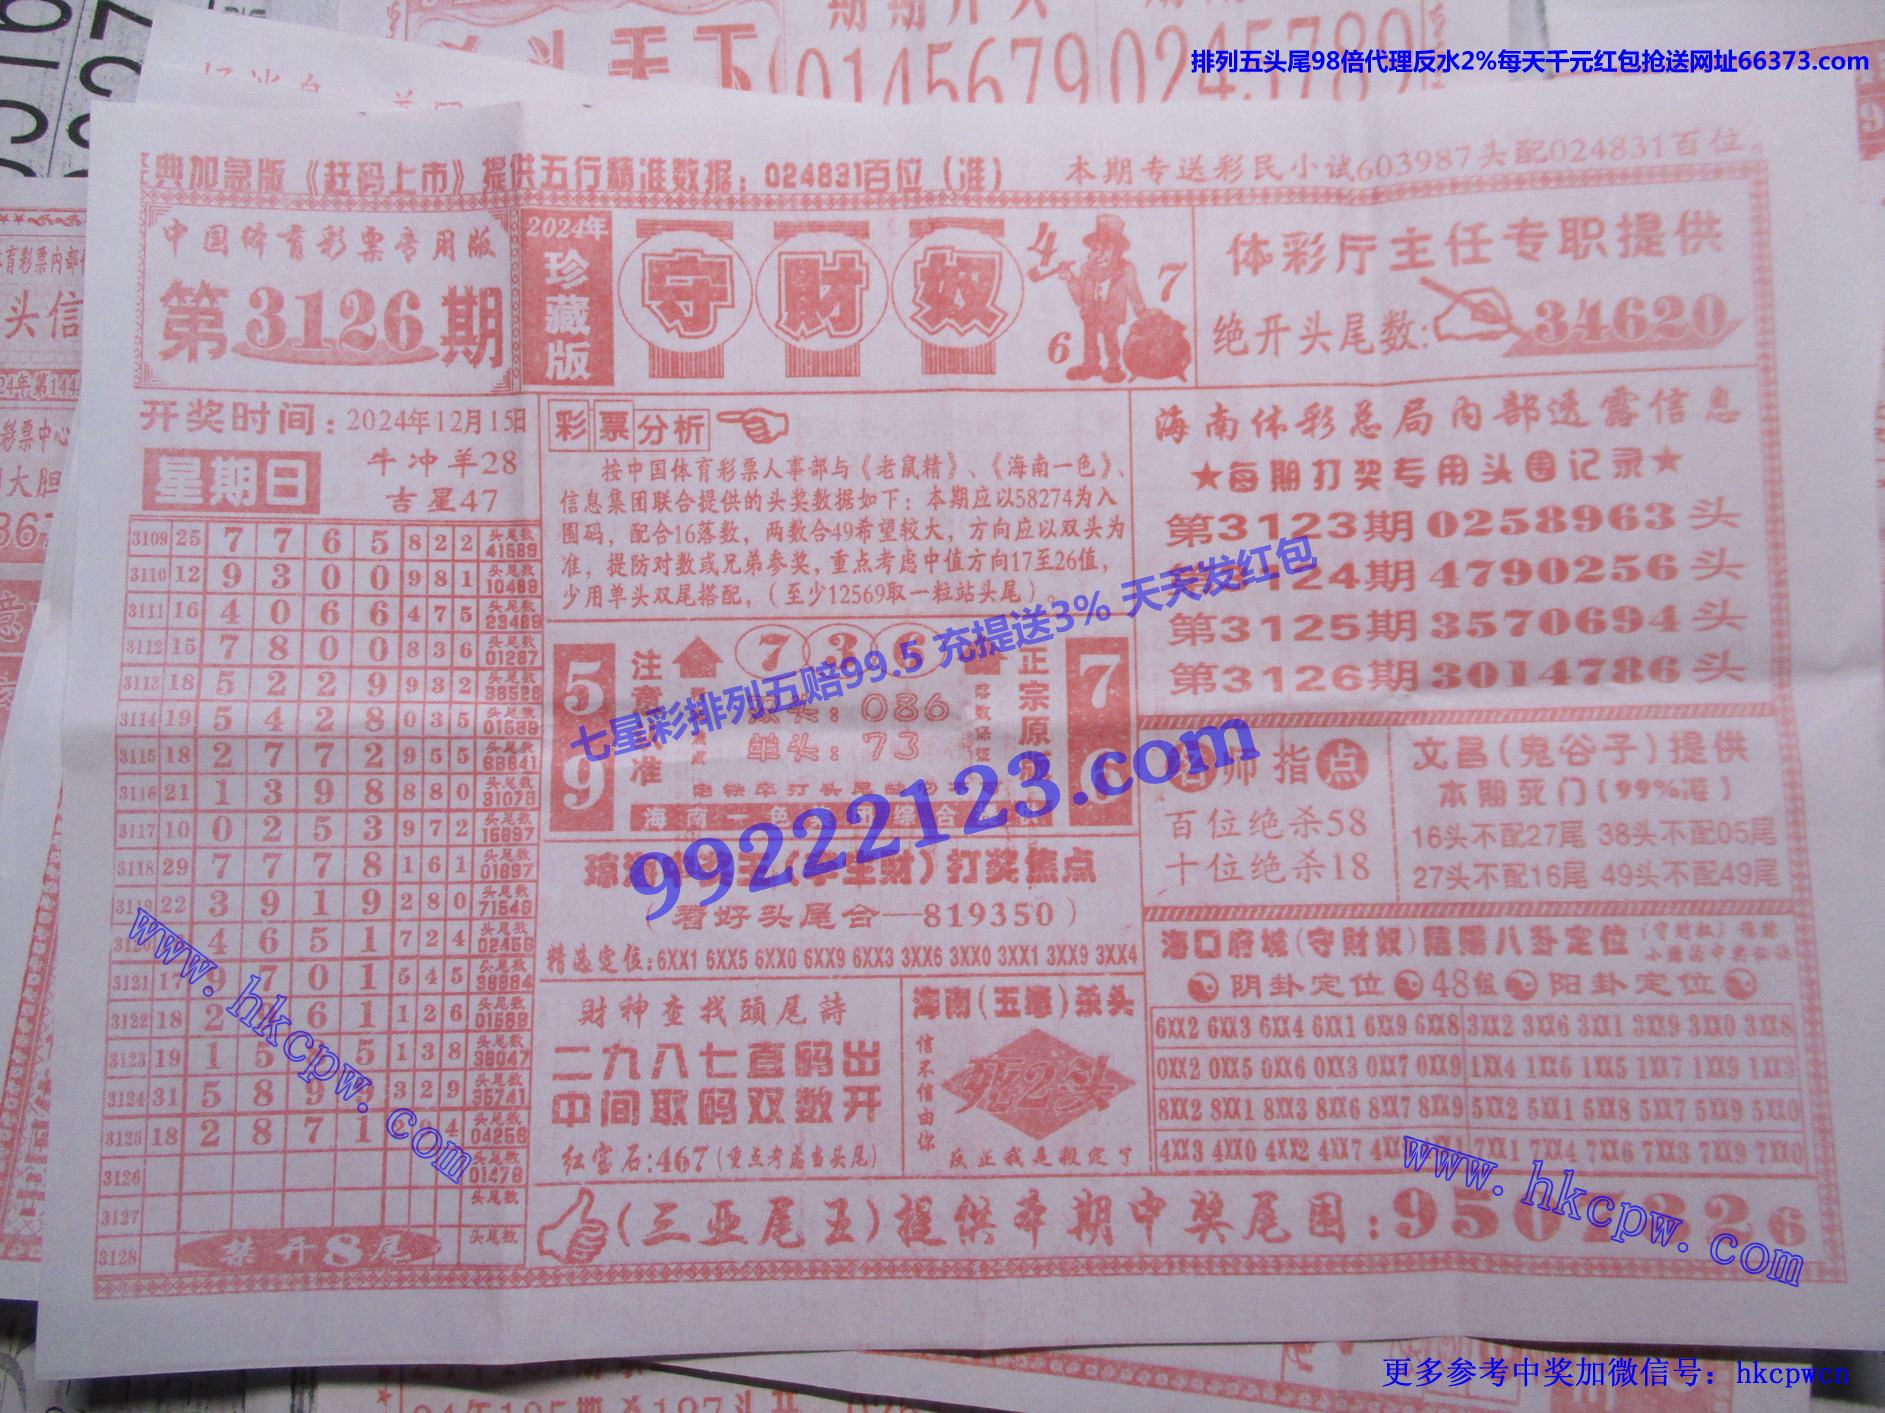 排列五头尾98倍代理反水2%每天千元红包抢送网址66373.com
典加急版《赶码上市》提供五行精准数据：024831百位（准）
本期专送彩民小试603987头配024831百位。
中国体育彩票专用版
第3126期
2024年
珍藏版
守財奴
4
7
6
体彩厅主任专职提供
绝开头尾数:34620
开奖时间：2024年12月15日
星期日
牛冲羊28
吉星47
3109 25 7 7 6 5 8 2 2 头尾数 41589
3110 12 9 3 0 0 9 8 1 头尾数 10469
3111 16 4 0 6 6 4 7 5 头尾数 23489
3112 15 7 8 0 0 8 3 6 头尾数 01287
3113 18 5 2 2 9 9 3 2 头尾数 38528
3114 19 5 4 2 8 0 3 5 头尾数 01589
3115 18 2 7 7 2 9 5 5 头尾数
3116 21 1 3 9 8 8 8 0 头尾数 31078
3117 10 0 2 5 3 9 7 2 头尾数 15897
3118 29 7 7 7 8 1 6 1 头尾数 01697
3119 22 3 9 1 9 2 8 0 头尾数 71549
4 6 5 1 7 2 4 头尾数 02456
3121 17 9 7 0 1 5 4 5 头尾数
3122 18 2 6 1 1 2 6 头尾数 01589
3123 19 1 5 5 1 3 8 头尾数 38047
3124 31 5 8 9 3 2 9 头尾数 35741
3125 18 2 8 7 1 4 头尾数 04256
3126 头尾数 01478
3127 头尾数
3128 头尾数
禁开8尾
彩票分析
按中国体育彩票人事部与《老鼠精》、《海南一色》、
信息集团联合提供的头奖数据如下：本期应以58274为入
围码，配合16落数，两数合49希望较大，方向应以双头为
准，提防对数或兄弟参奖，重点考虑中值方向17至26值，
少用单头双尾搭配，（至少12569取一粒站头尾）。
59
注意 准
7 3
双头：086
单头：73
正宗原版
7
海南一色 综合
打奖焦点
（看好头尾合—819350）
精选定位:6XX1 6XX5 6XX0 6XX9 6XX3 3XX6 3XX0 3XX1 3XX9 3XX4
財神查找頭尾詩
二九八七直码出
中间取码双数开
红宝石:467（重点考虑当头尾）
海南（五毒）杀头
信不信由你
死2头
反正我是报定了
海南体彩总局内部透露信息
★每期打奖专用头围记录★
第3123期0258963头
第3124期4790256头
第3125期3570694头
第3126期3014786头
师指点
百位绝杀58
十位绝杀18
文昌（鬼谷子）提供
本期死门（99%准）
16头不配27尾 38头不配05尾
27头不配16尾 49头不配49尾
海口府城（守財奴）阴阳八卦定位
阴卦定位 48组 阳卦定位
6XX2 6XX3 6XX4 6XX1 6XX9 6XX8 3XX2 3XX6 3XX1 3XX9 3XX0 3XX8
0XX2 0XX5 0XX6 0XX3 0XX7 0XX9 1XX4 1XX6 1XX5 1XX7 1XX9 1XX3
8XX2 8XX1 8XX3 8XX6 8XX7 8XX9 5XX2 5XX1 5XX8 5XX7 5XX9 5XX0
4XX3 4XX0 4XX2 4XX7 7XX1 7XX4 7XX6 7XX3 7XX9 7XX0
（三亚尾王）提供本期中奖尾围：
七星彩排列五赔99.5 充提送3% 天天发红包
99222123.com
www.hkcpw.com
www.hkcpw.com
更多参考中奖加微信号：hkcpwcn